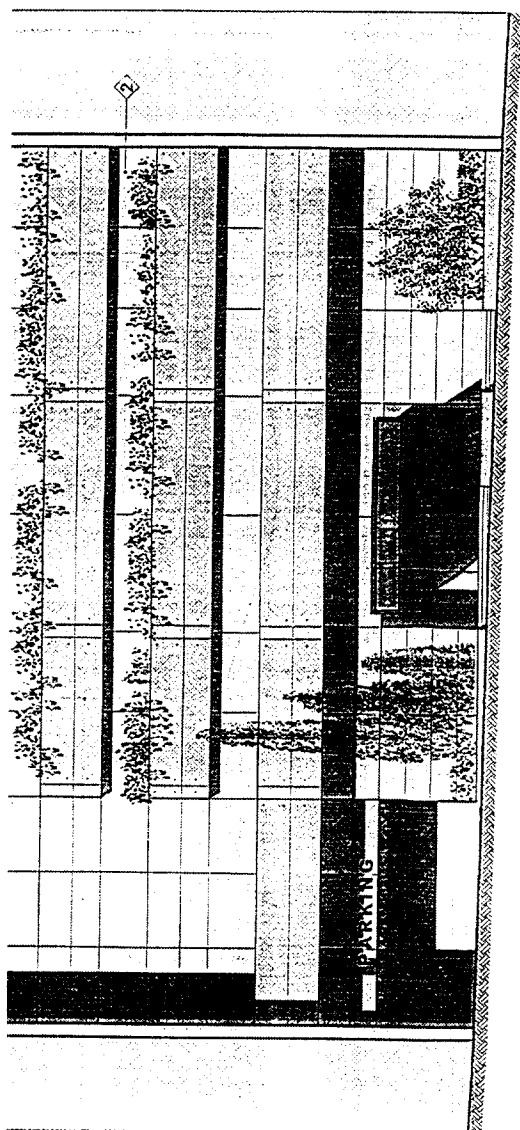 2
PARKING